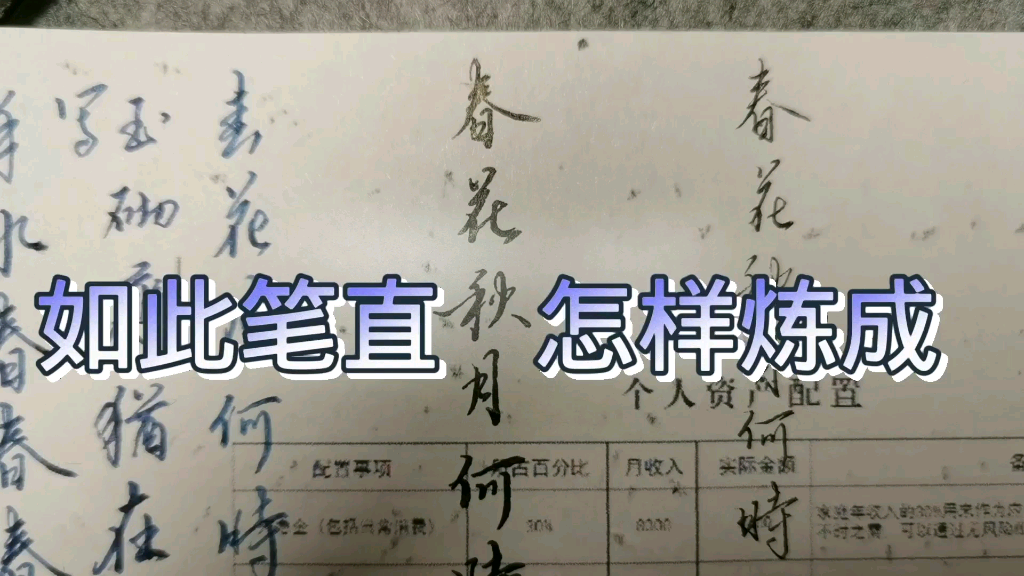 如此笔直 怎样炼成
春花秋月何時
春花秋月何時
春花月何時
玉砌猶在
写
水春春春
个人资产配置
配置事项
占百分比
月收入
实际金额
金（包括日常消费）
30%
8000
家庭年收入的30%用来作为
不时之需 可以通过无风险